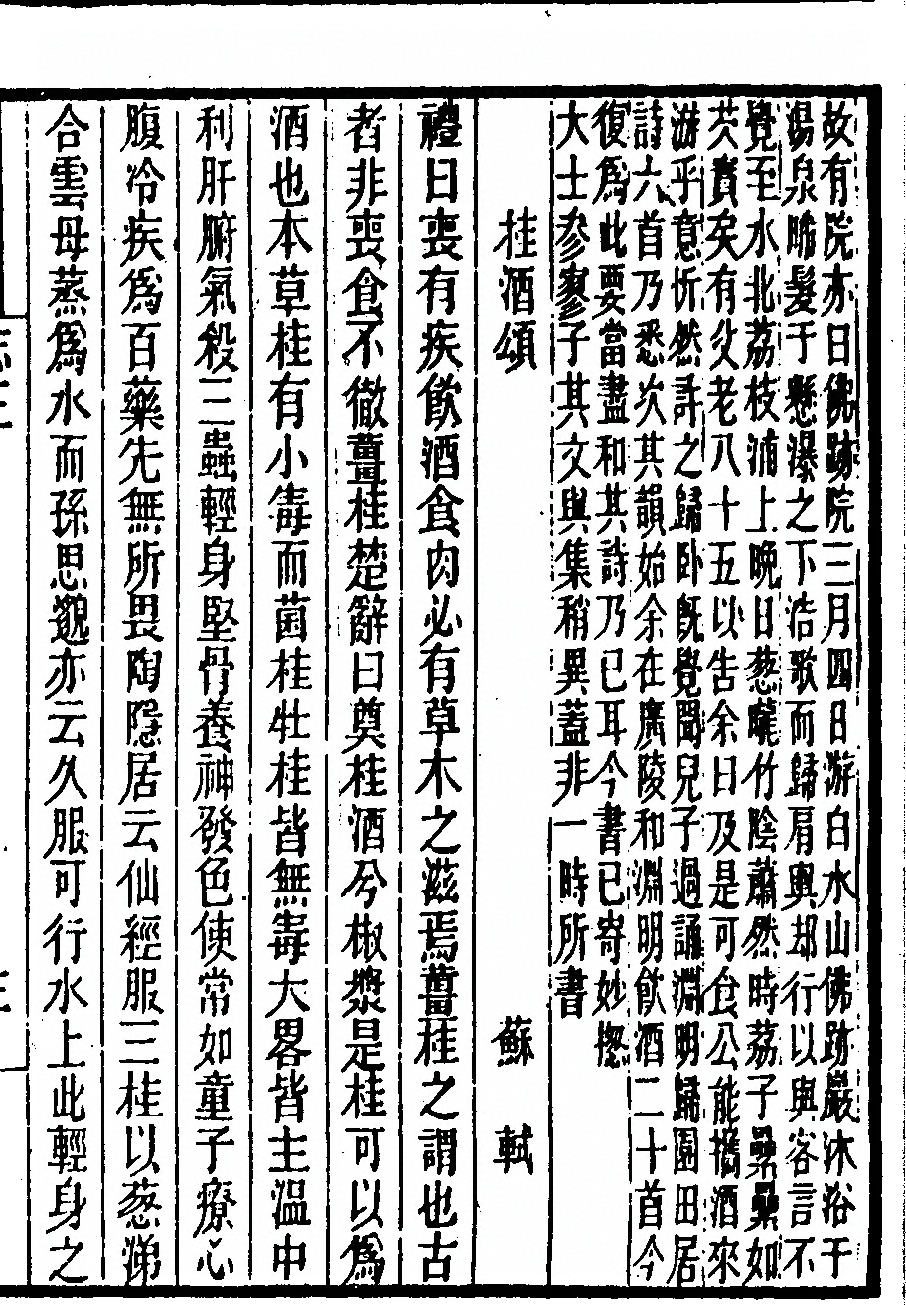 故有院亦曰佛跡院三月四日游白水山佛跡巖沐浴于
湯泉晞髮于懸瀑之下浩歌而歸肩輿却行以與客言不
覺至水北荔枝浦上晚日葱曨竹陰蕭然時荔子纍纍如
芡實矣有父老八十五以告余曰及是可食公能擕酒來
游乎意忻然許之歸卧既覺聞兒子過誦淵明歸園田居
詩六首乃悉次其韻始余在廣陵和淵明飮酒二十首今
復爲此要當盡和其詩乃已耳今書已寄妙揔
大士參寥子其文與集稍異蓋非一時所書
桂酒頌 蘇軾
禮曰喪有疾飮酒食肉必有草木之滋焉薑桂之謂也古
者非喪食不徹薑桂楚辭曰奠桂酒兮椒漿是桂可以爲
酒也本草桂有小毒而菌桂牡桂皆無毒大畧皆主温中
利肝腑氣殺三蟲輕身堅骨養神發色使常如童子療心
腹冷疾爲百藥先無所畏陶隱居云仙經服三桂以葱涕
合雲母蒸爲水而孫思邈亦云久服可行水上此輕身之